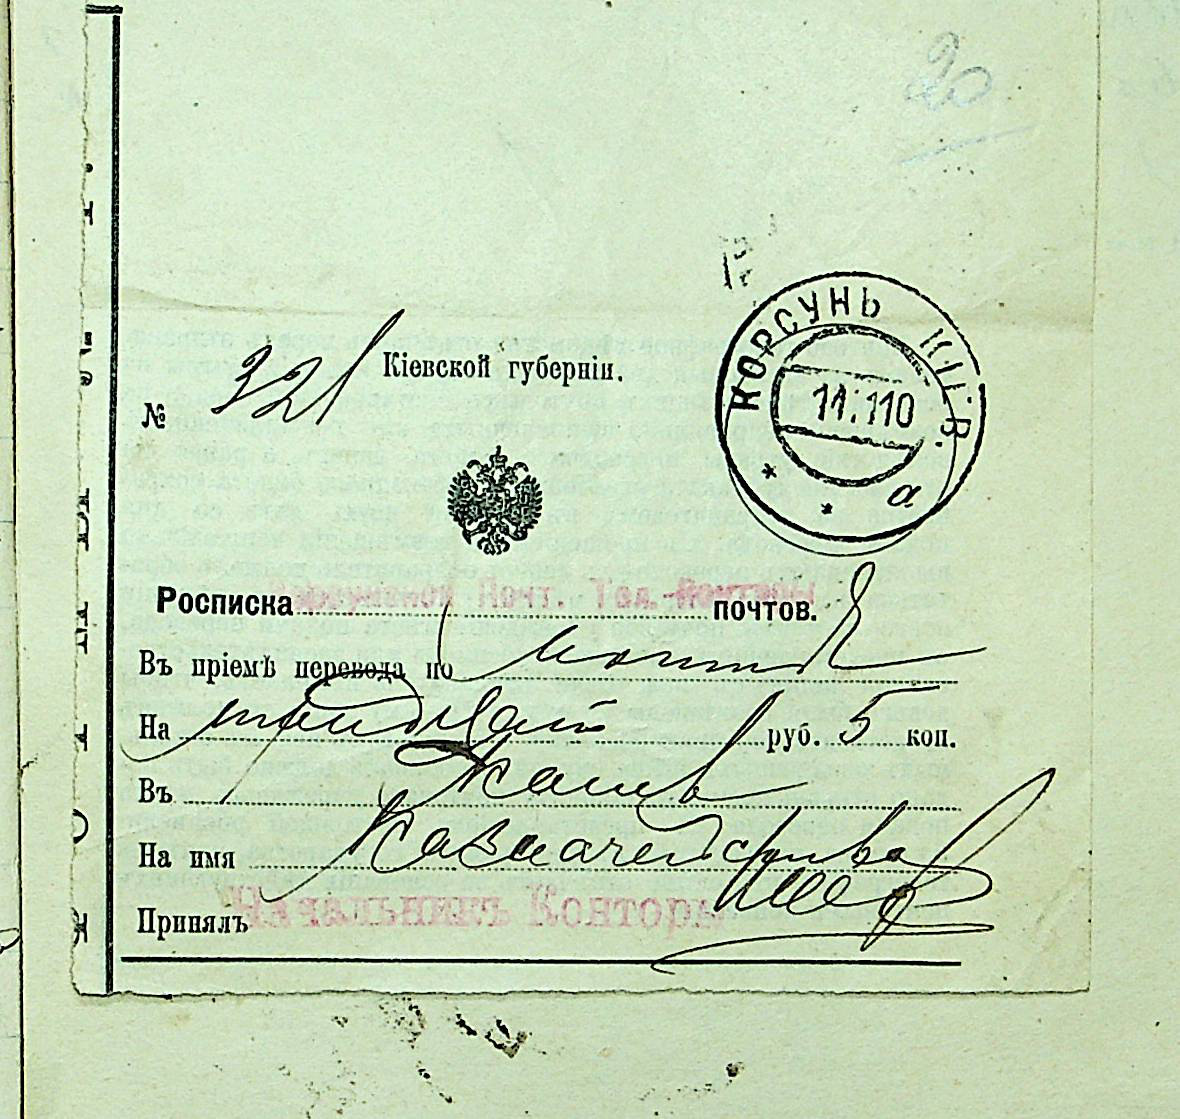 20
КОРСУНЬ КІЕВ.
11.1 10
* * а
Кіевской губерніи.
№ 321
Росписка Корсунской Почт. Тел. Конторы почтов.
Въ пріемѣ перевода по почтѣ
На тридцать руб. 5 коп.
Въ Каневъ
На имя Казначейства
Принялъ Начальникъ Конторы